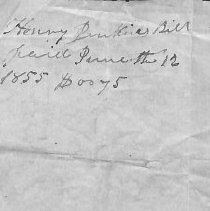 Henry Jenkins Bill
paid June the 12
1855 $00.75